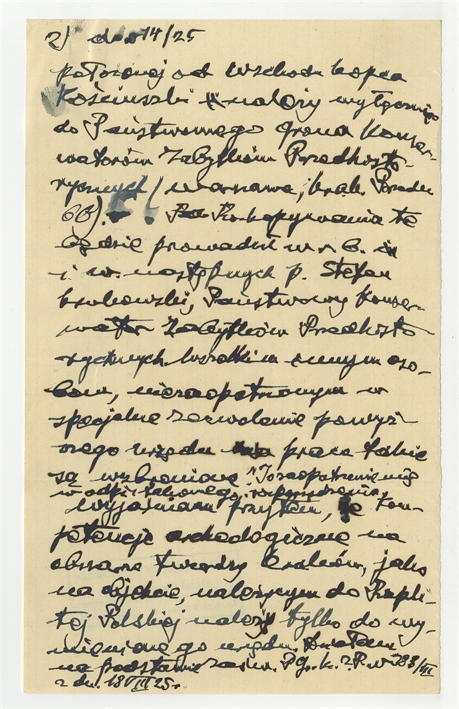 2) dn 14/25
położonej od wschodu kopca
Kościuszki należy wyłącznie
do Państwowego Grona Konser-
watorów Zabytków Przedhisto-
rycznych (Warszawa, Krak. Przedm.
66). Rozkopywania te
będzie prowadził w r. b. i
i w. następnych p. Stefan
Krukowski, Państwowy Konser-
wator Zabytków Przedhisto
rycznych. Wszelkim innym oso-
bom, niezaopatrzonym w
specjalne zezwolenie powyż-
szego urzędu prace takie
są wzbronione. Po zaopatrzeniu
w odpis takowego rozporządzenia
wyjaśniam przytem, że kom-
petencje archeologiczne na
obszarze twierdzy Kraków, jako
na objekcie, należącym do Rzpli-
tej Polskiej należą tylko do wy-
mienionego urzędu.
na podstawie P.G.K. 783/III
z dn. 18 III 25 r.